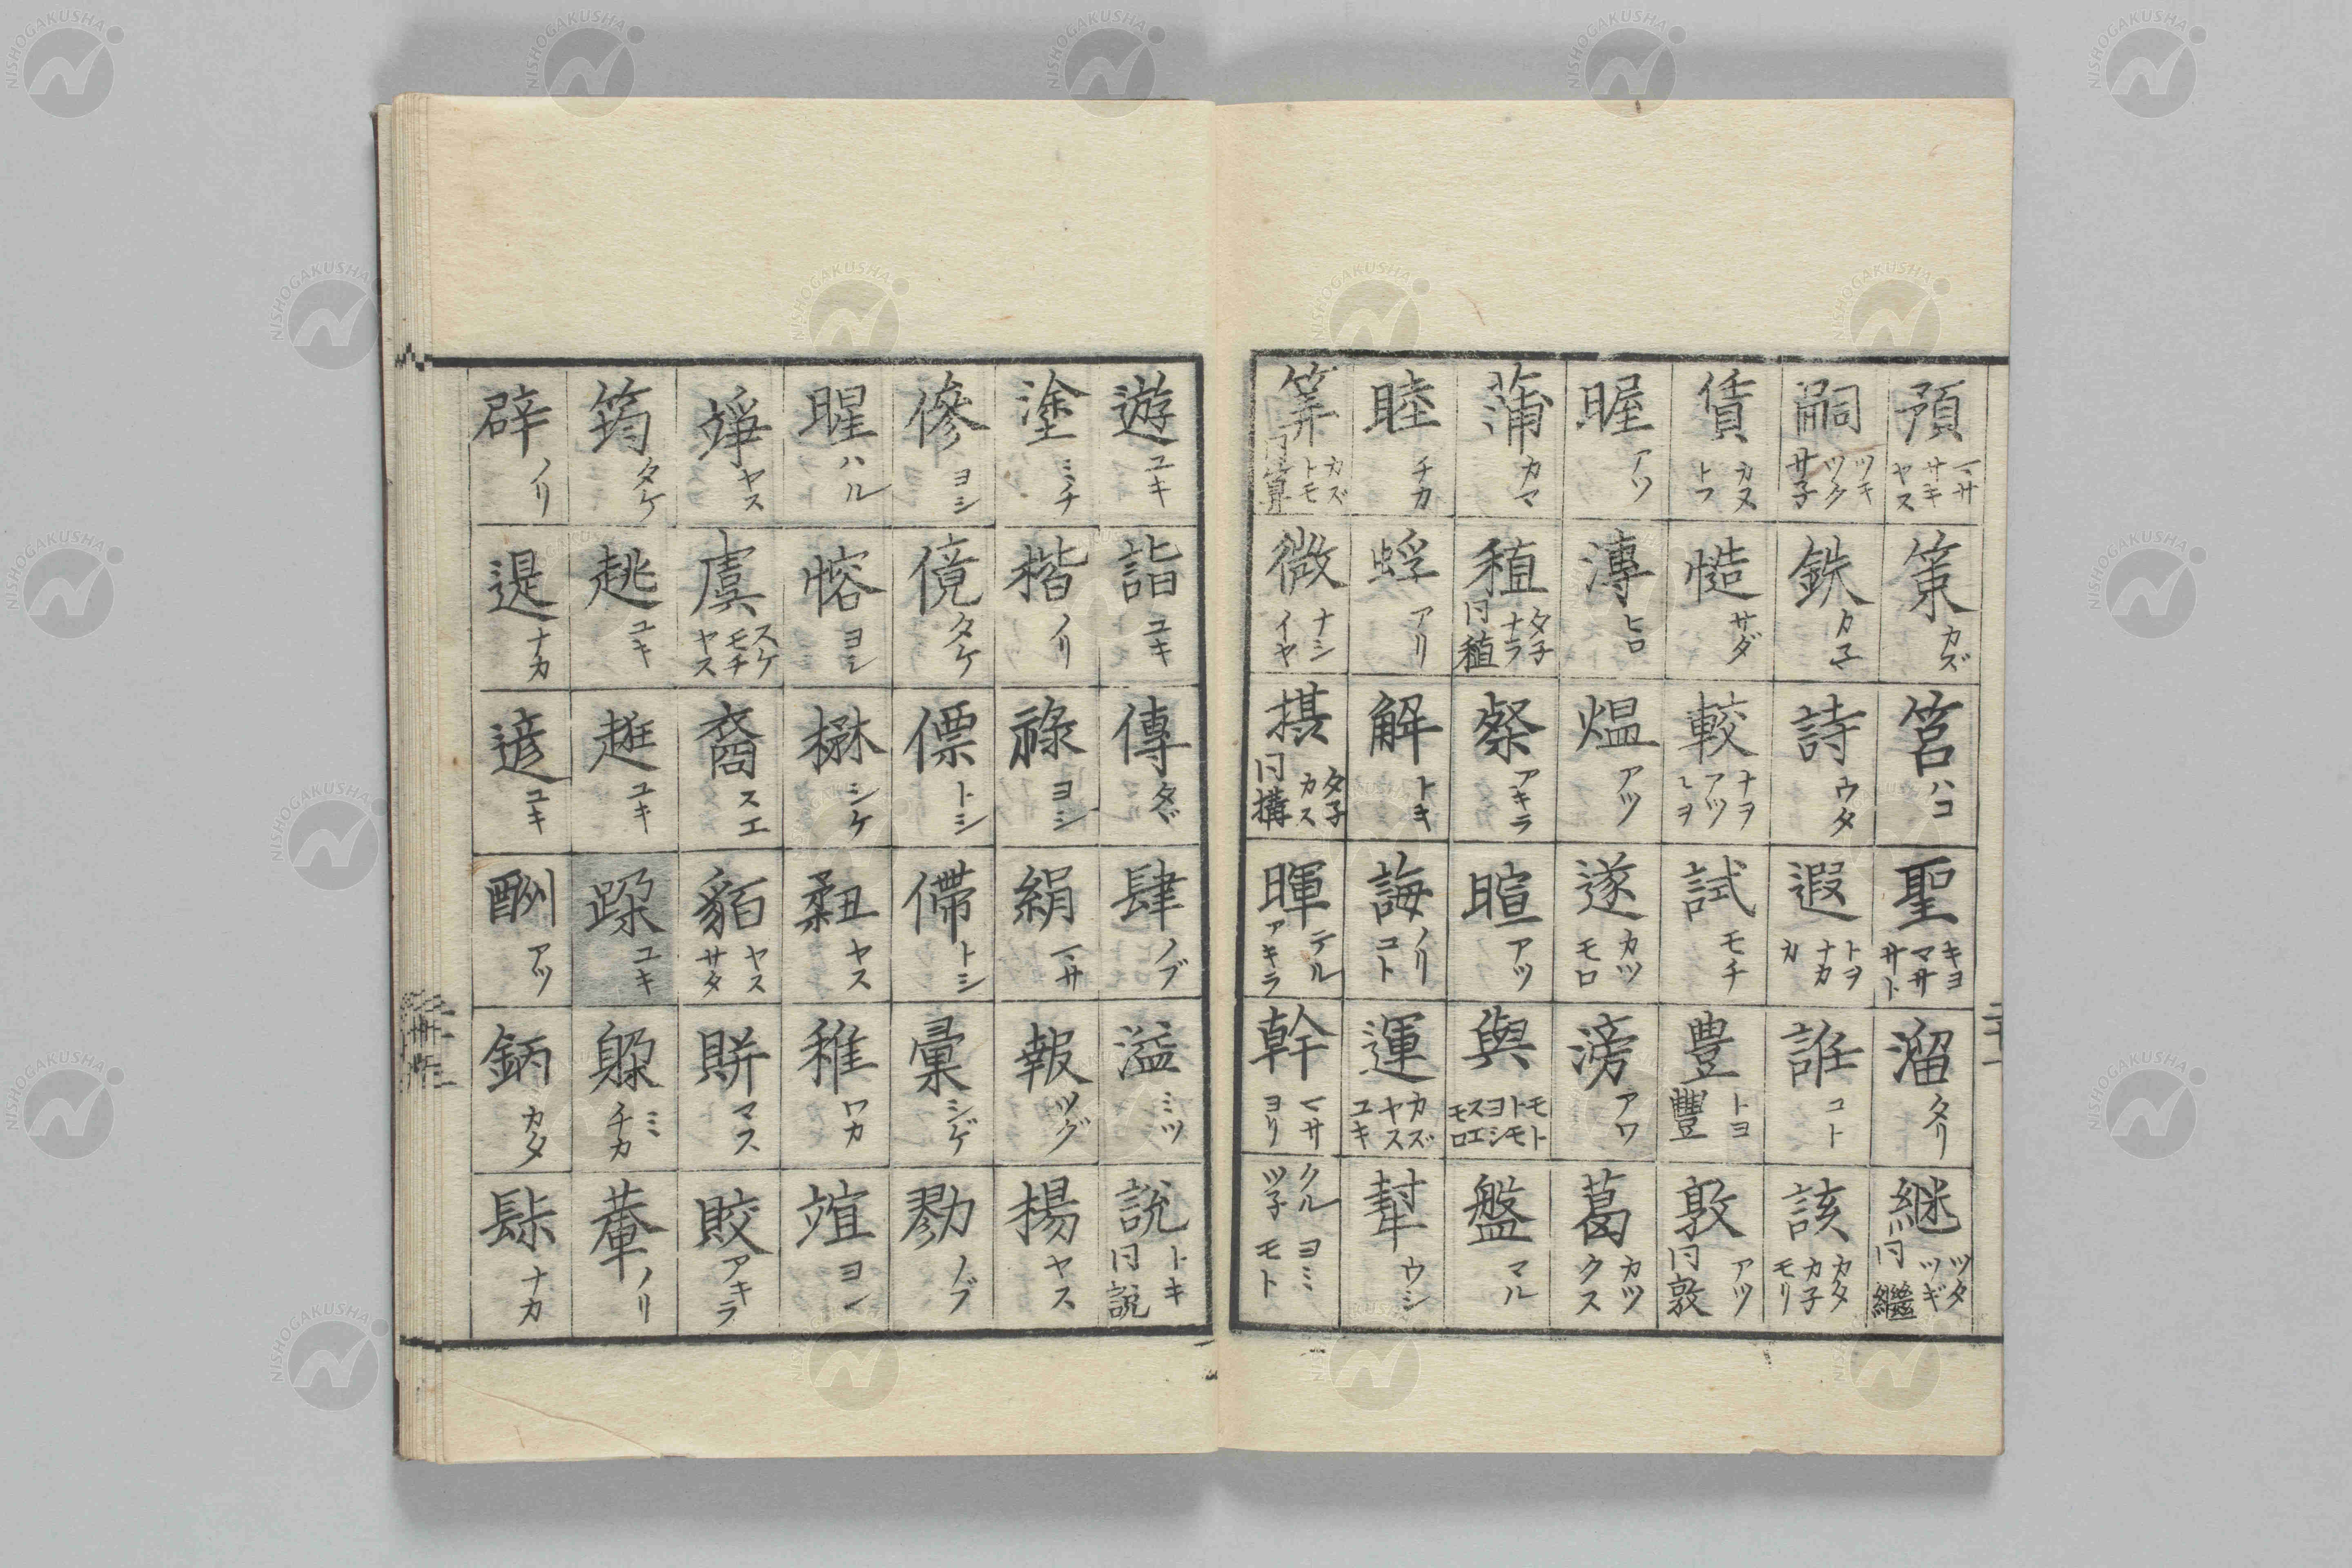 預 マサ サキ ヤス
策 カズ
筥 ハコ
聖 キヨ マサ サト
溜 タリ
継 ツタ ツギ 同繼
嗣 ツキ ツク サ子
鉄 カ子
詩 ウタ
遐 トヲ ナカ カ
誰 コト
該 カタ カ子 モリ
賃 カヌ トフ
慥 サダ
較 ナヲ アツ トヲ
試 モチ
豊 トヨ 豐
敦 アツ 同敦
暒 アツ
溥 ヒロ
煴 アツ
遂 カツ モロ
滂 アワ
葛 カツ クス
蒲 カマ
稙 タ子 ナラ 同稙
粲 アキラ
暄 アツ
與 モト トモ ヨシ スエ モロ
盤 マル
睦 チカ
蜉 アリ
解 トキ
誨 ノリ コト
運 カズ ヤス ユキ
犎 ウシ
筭 カズ トモ 同算
微 ナシ イヤ
搆 タ子 カス 同構
暉 テル アキラ
幹 マサ ヨリ
クル ツ子 ヨミ モト
二十一
遊 ユキ
詣 ユキ
傳 タヾ
肆 ノブ
溢 ミツ
説 トキ 同説
塗 ミチ
楷 ノリ
祿 ヨシ
絹 マサ
報 ツグ
楊 ヤス
傪 ヨシ
傹 タケ
僄 トシ
僀 トシ
彙 シゲ
勠 ノブ
暒 ハル
愹 ヨシ
楙 シケ
䎡 ヤス
稚 ワカ
竩 ヨシ
竫 ヤス
虞 スケ モチ ヤス
裔 スエ
貊 ヤス サタ
賆 マス
賋 アキラ
筠 タケ
趒 ユキ
趉 ユキ
跺 ユキ
躲 ミ チカ
輂 ノリ
辟 ノリ
遈 ナカ
遃 ユキ
酬 アツ
鈵 カタ
镺 ナカ